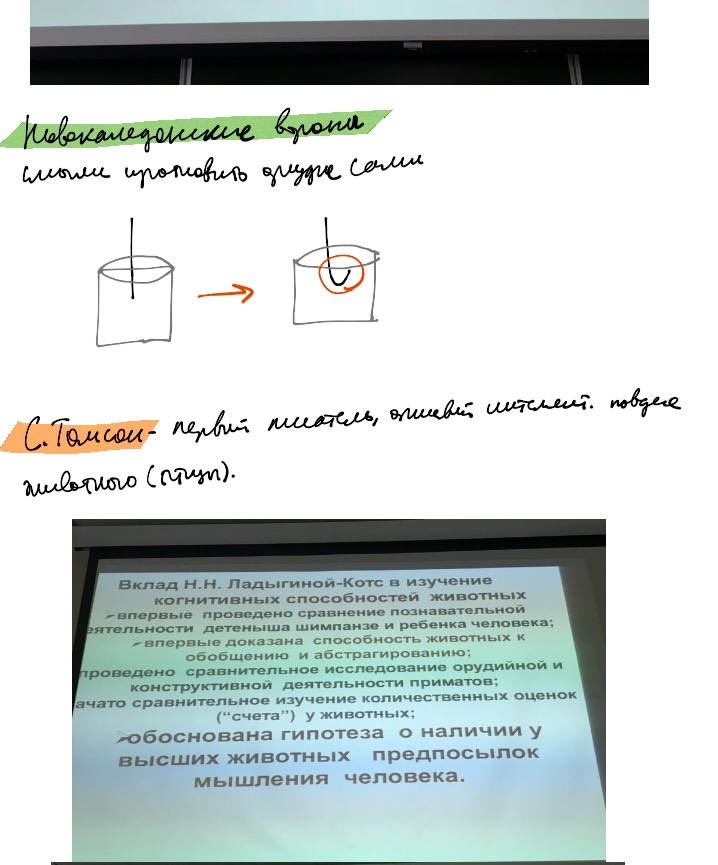 Новокаледонские вороны
смогли изготовить орудие сами
С. Томсон - первый писатель, описавший интеллект. поведен
животного (птицы).
Вклад Н.Н. Ладыгиной-Котс в изучение
когнитивных способностей животных
➢впервые проведено сравнение познавательной
еятельности детеныша шимпанзе и ребенка человека;
➢впервые доказана способность животных к
обобщению и абстрагированию;
проведено сравнительное исследование орудийной и
конструктивной деятельности приматов;
ачато сравнительное изучение количественных оценок
(“счета”) у животных;
➢обоснована гипотеза о наличии у
высших животных предпосылок
мышления человека.